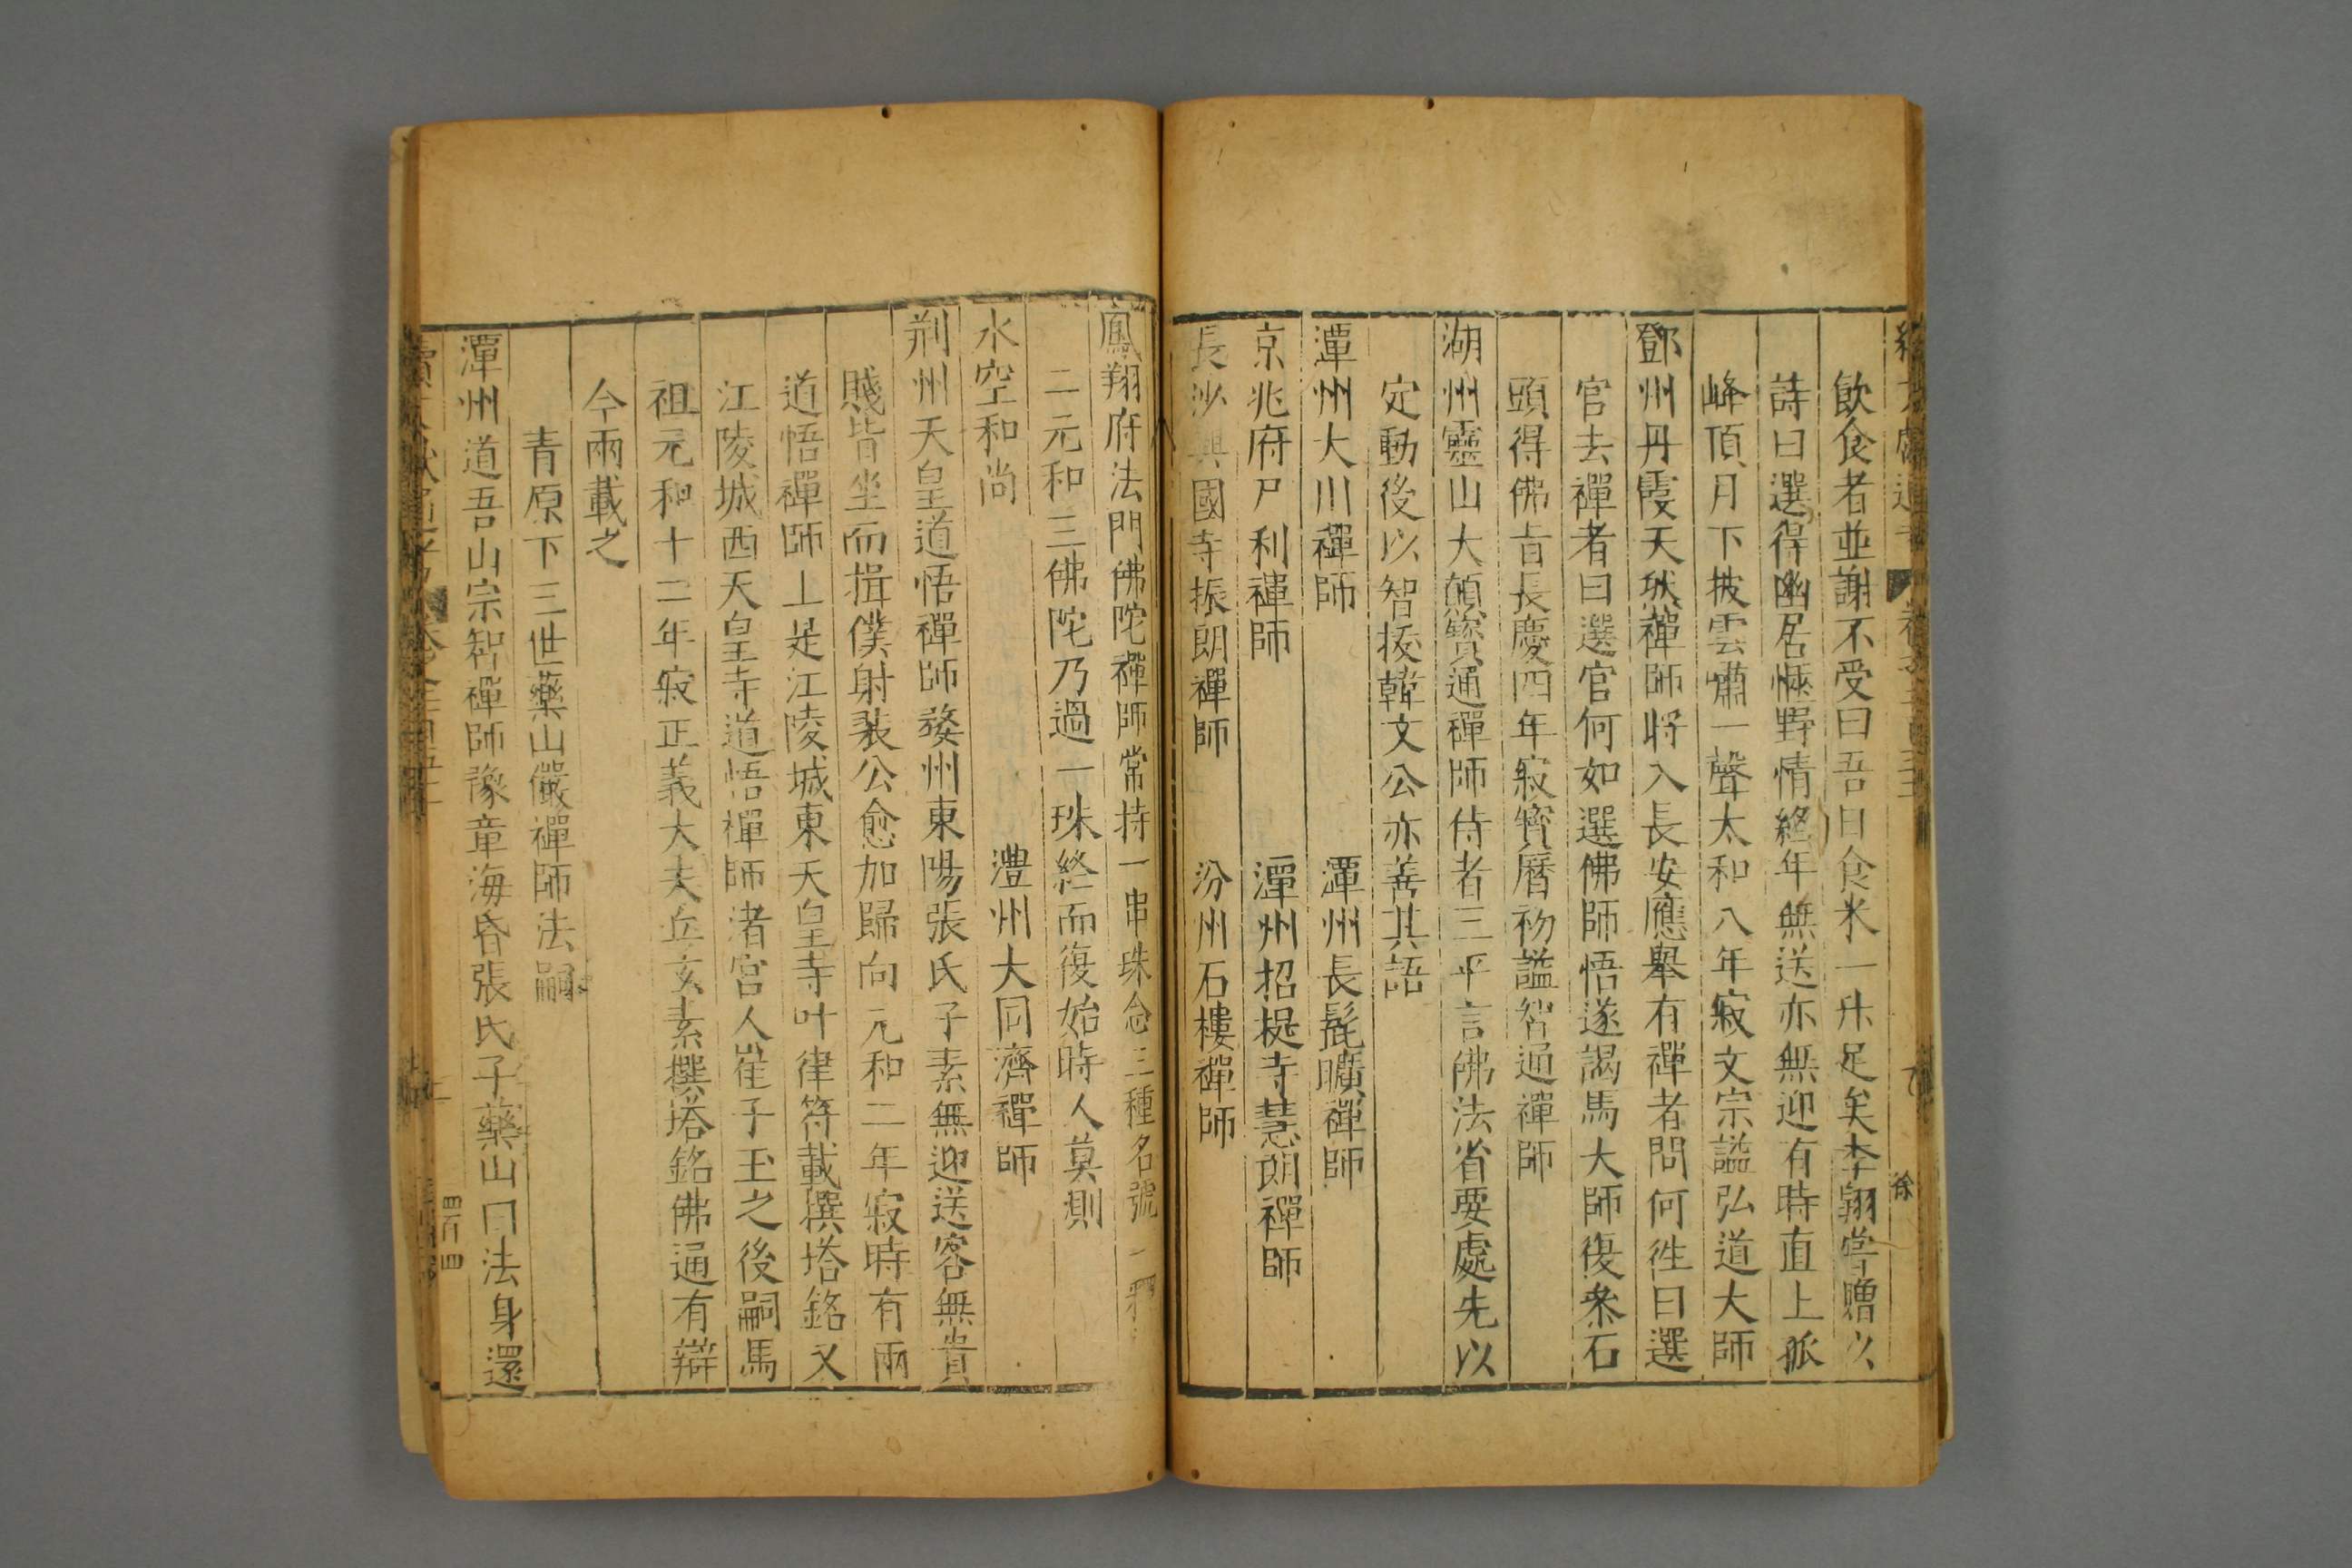 飲食者並謝不受曰吾日食米一升足矣李翶甞贈以
詩曰選得幽居愜野情終年無送亦無迎有時直上孤
峰頂月下披雲嘯一聲太和八年寂文宗謚弘道大師
鄧州丹霞天然禪師將入長安應舉有禪者問何徃曰選
官去禪者曰選官何如選佛師悟遂謁馬大師復叅石
頭得佛旨長慶四年寂寳曆初謚智通禪師
湖州靈山大顛寳通禪師侍者三平言佛法省要處先以
定動後以智抜韓文公亦善其語
潭州大川禪師 潭州長髭曠禪師
京兆府尸利禪師 潭州招提寺慧朗禪師
長沙興國寺振朗禪師 汾州石樓禪師
鳳翔府法門佛陀禪師常持一串珠念三種名號一釋
二元和三佛陀乃過一珠終而復始時人莫測
水空和尚 澧州大同濟禪師
荆州天皇道悟禪師婺州東陽張氏子素無迎送客無貴
賤皆坐而揖僕射裴公愈加歸向元和二年寂時有兩
道悟禪師上是江陵城東天皇寺叶律符載撰塔銘又
江陵城西天皇寺道悟禪師渚宫人崔子玉之後嗣馬
祖元和十二年寂正義大夫丘玄素撰塔銘佛通有辯
今兩載之
青原下三世藥山儼禪師法嗣
潭州道吾山宗智禪師豫章海昏張氏子藥山曰法身還